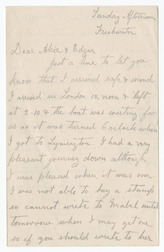 Sunday Afternoon
Freshwater
Dear Alice & Edgar
Just a line to let you
know that I arrived safe & sound
I arrived in London 12 noon & left
at 2-10 & the boat was waiting for
us so it was turned 6 o'clock when
I got to Lymington. I had a very
pleasant journey down although
I was pleased when it was over
I was not able to buy a stamp
so cannot write to Mabel until
tomorrow when I may get one
so if you should write to her